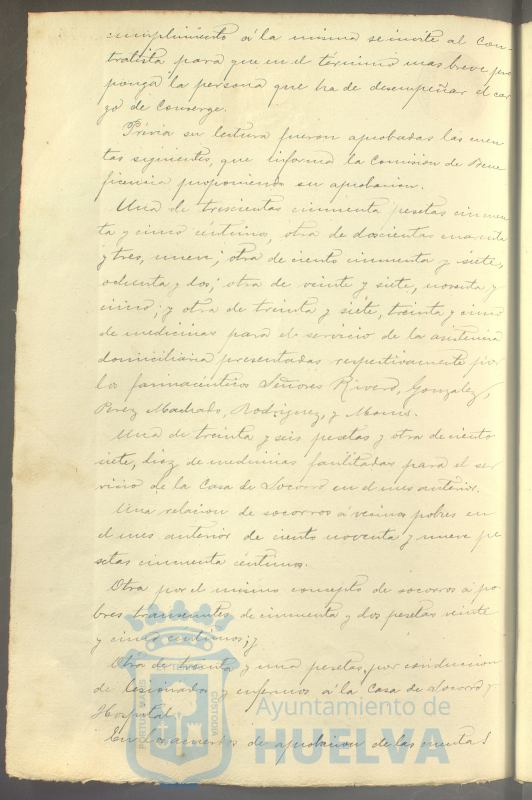 cumplimiento á la misma se invite al Con-
tratista para que en el término mas breve pro
ponga la persona que ha de desempeñar el car
go de Conserge.
Prévia su lectura fueron aprobadas las cuen
tas siguientes, que informa la Comision de Bene
ficencia proponiendo su aprobacion.
Una de trescientas cincuenta pesetas cincuen
ta y cinco céntimos, otra de doscientas cuarenta
y tres, nueve; otra de ciento cincuenta y siete,
ochenta y dos; otra de veinte y siete, noventa y
cinco; y otra de treinta y siete, treinta y cinco
de medicinas para el servicio de la asistencia
domiciliaria presentadas respectivamente por
los farmacéuticos Señores Rivero, Gonzalez,
Perez Machado, Rodriguez, y
Una de treinta y seis pesetas y otra de ciento
siete, diez de medicinas facilitadas para el ser
vicio de la Casa de Socorro en el mes anterior.
Una relacion de socorros á vecinos pobres en
el mes anterior de ciento noventa y nueve pe
setas cincuenta céntimos.
Otra por el mismo concepto de socorros á po
bres transeuntes de cincuenta y dos pesetas veinte
y cinco céntimos; y
Otra de treinta y una pesetas, por conduccion
de lesionados y enfermos á la Casa de Socorro y
Hospital.
En los acuerdos de aprobacion de las cuentas
PORTUS MARIS
CUSTODIA
Ayuntamiento de
HUELVA